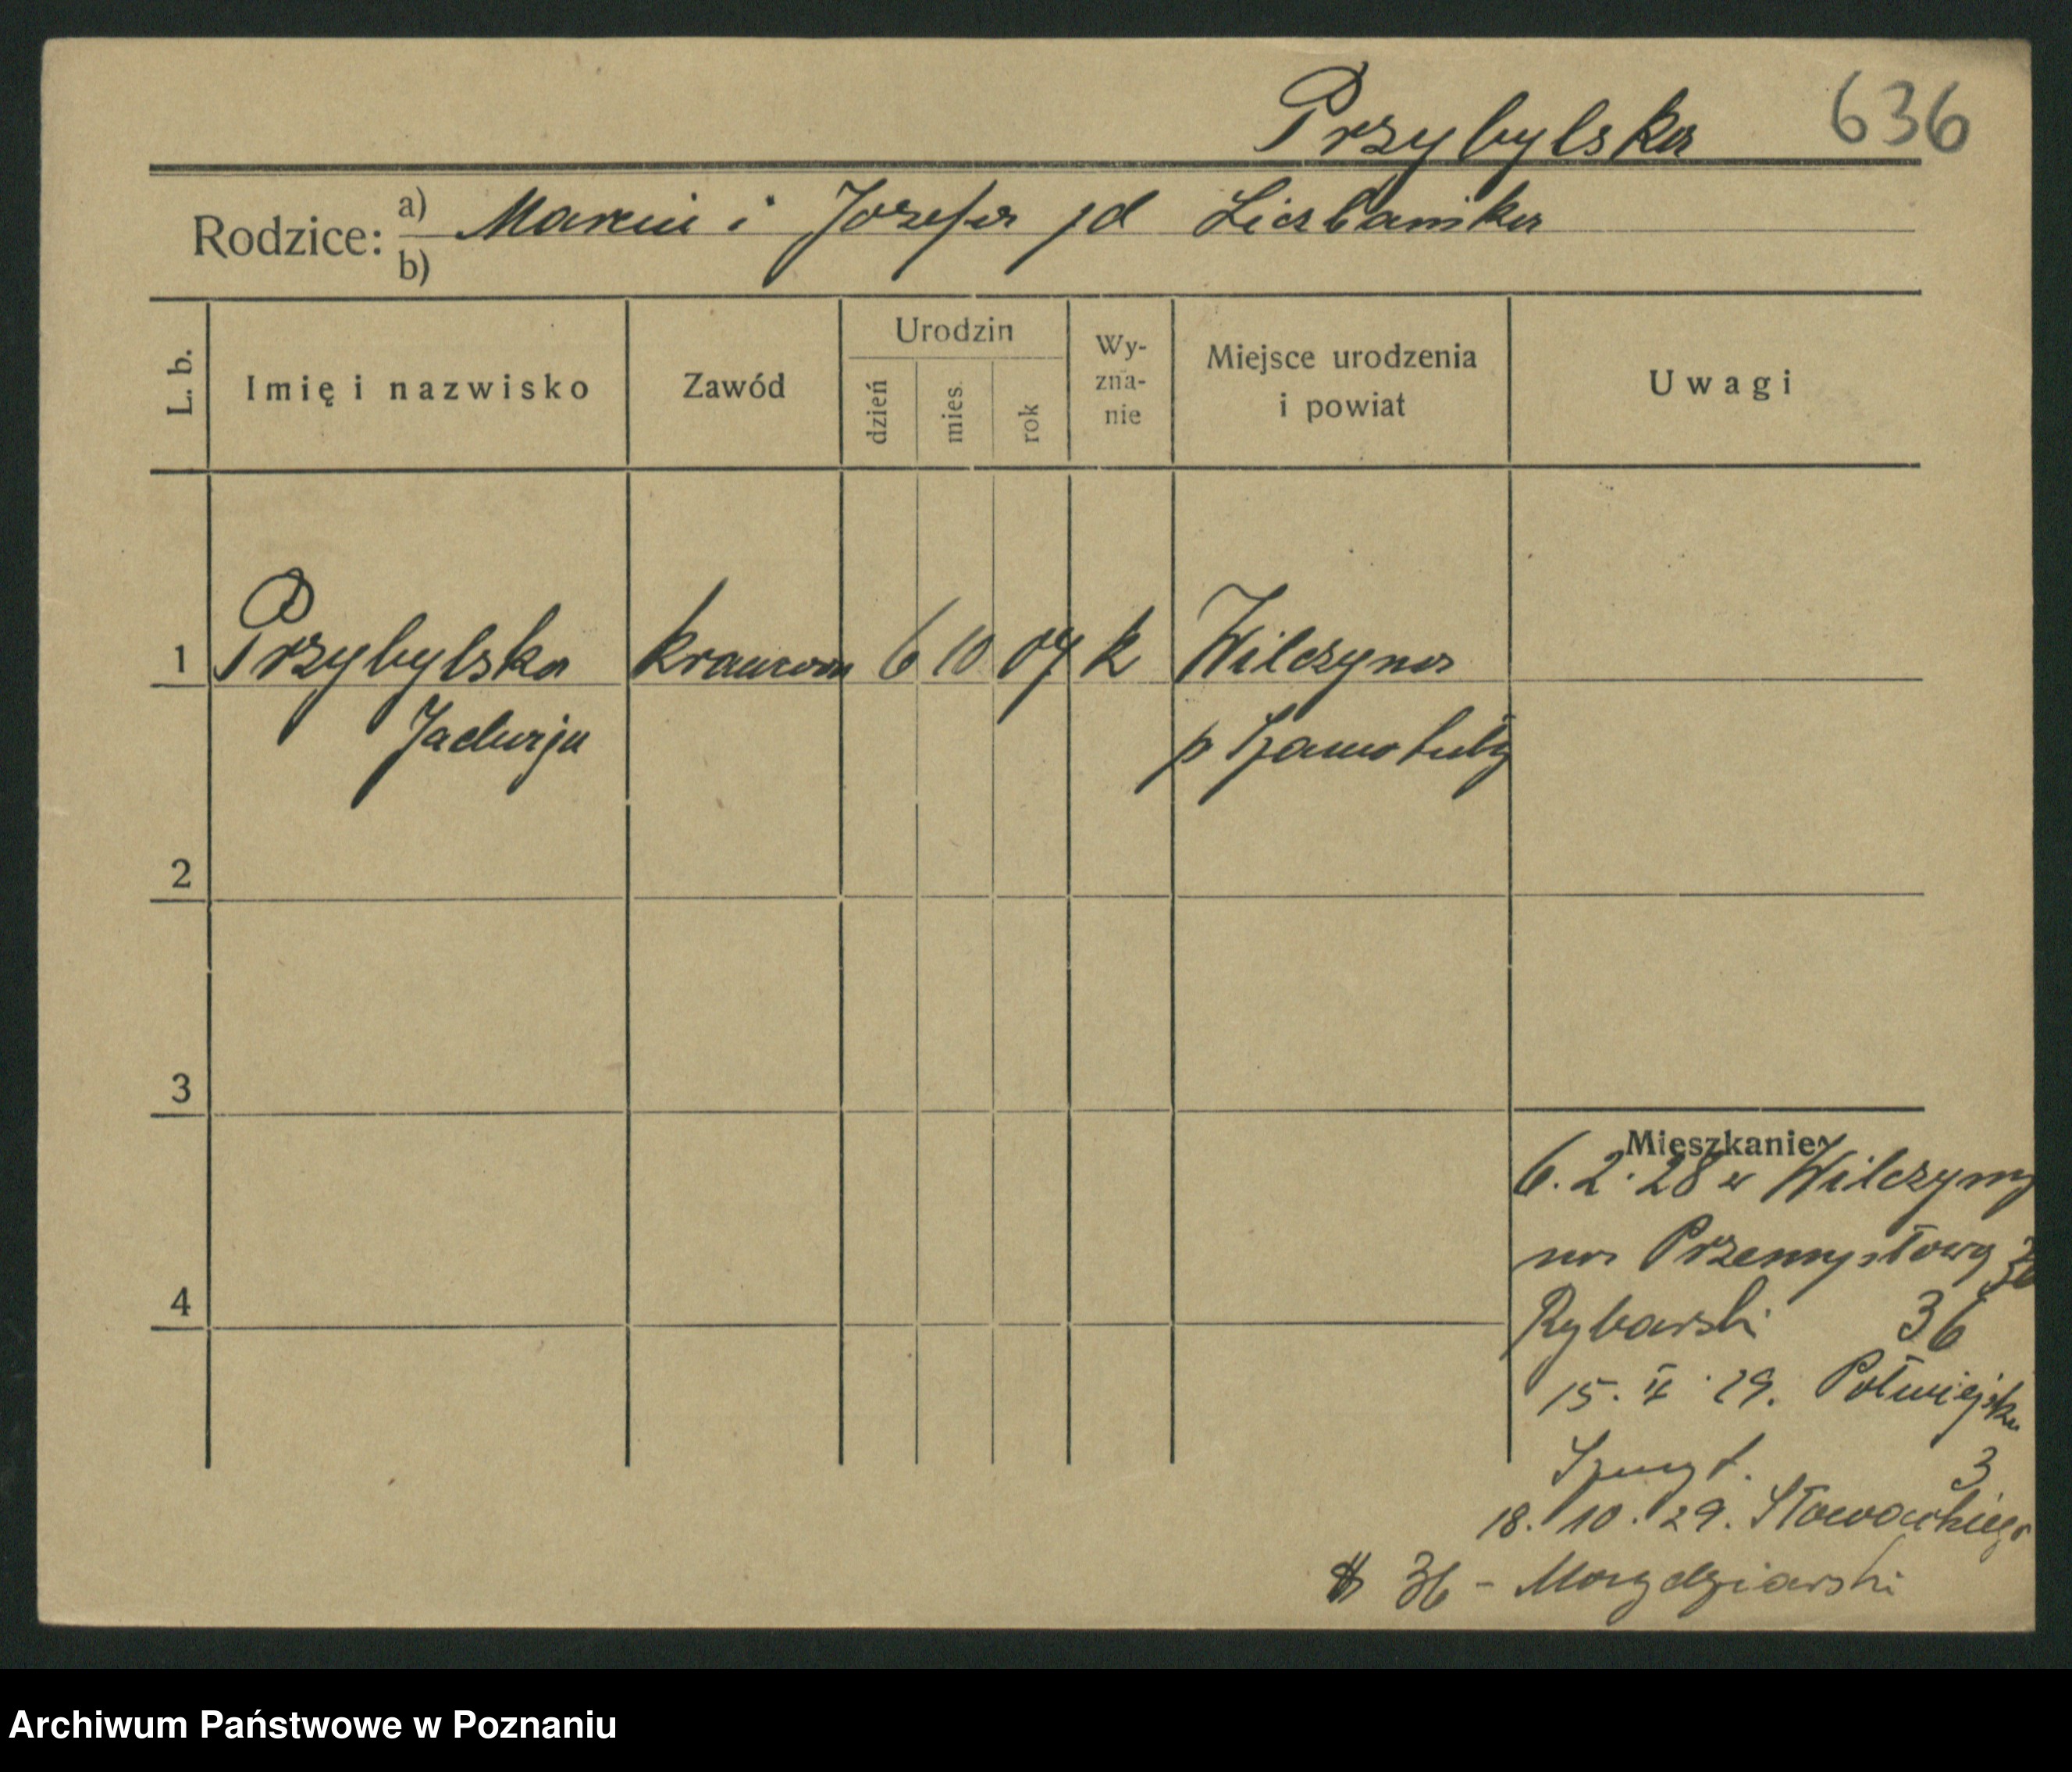 Przybylska 636
Rodzice: a) Marcin i Józefa jd Liczbańska
b)
L. b. Imię i nazwisko Zawód Urodzin dzień mies. rok Wy-zna-nie Miejsce urodzenia i powiat Uwagi
1 Przybylska krawcowa 6 10 07 k Wilczyna
Jadwiga p Szamotuły
2
3
Mieszkanie
6. 2. 28 z Wilczyny
na Przemysłową
4
Rybarski 36
15. 29. Półwiejska
3
18. 10. 29. Słowackiego
36 -
Archiwum Państwowe w Poznaniu